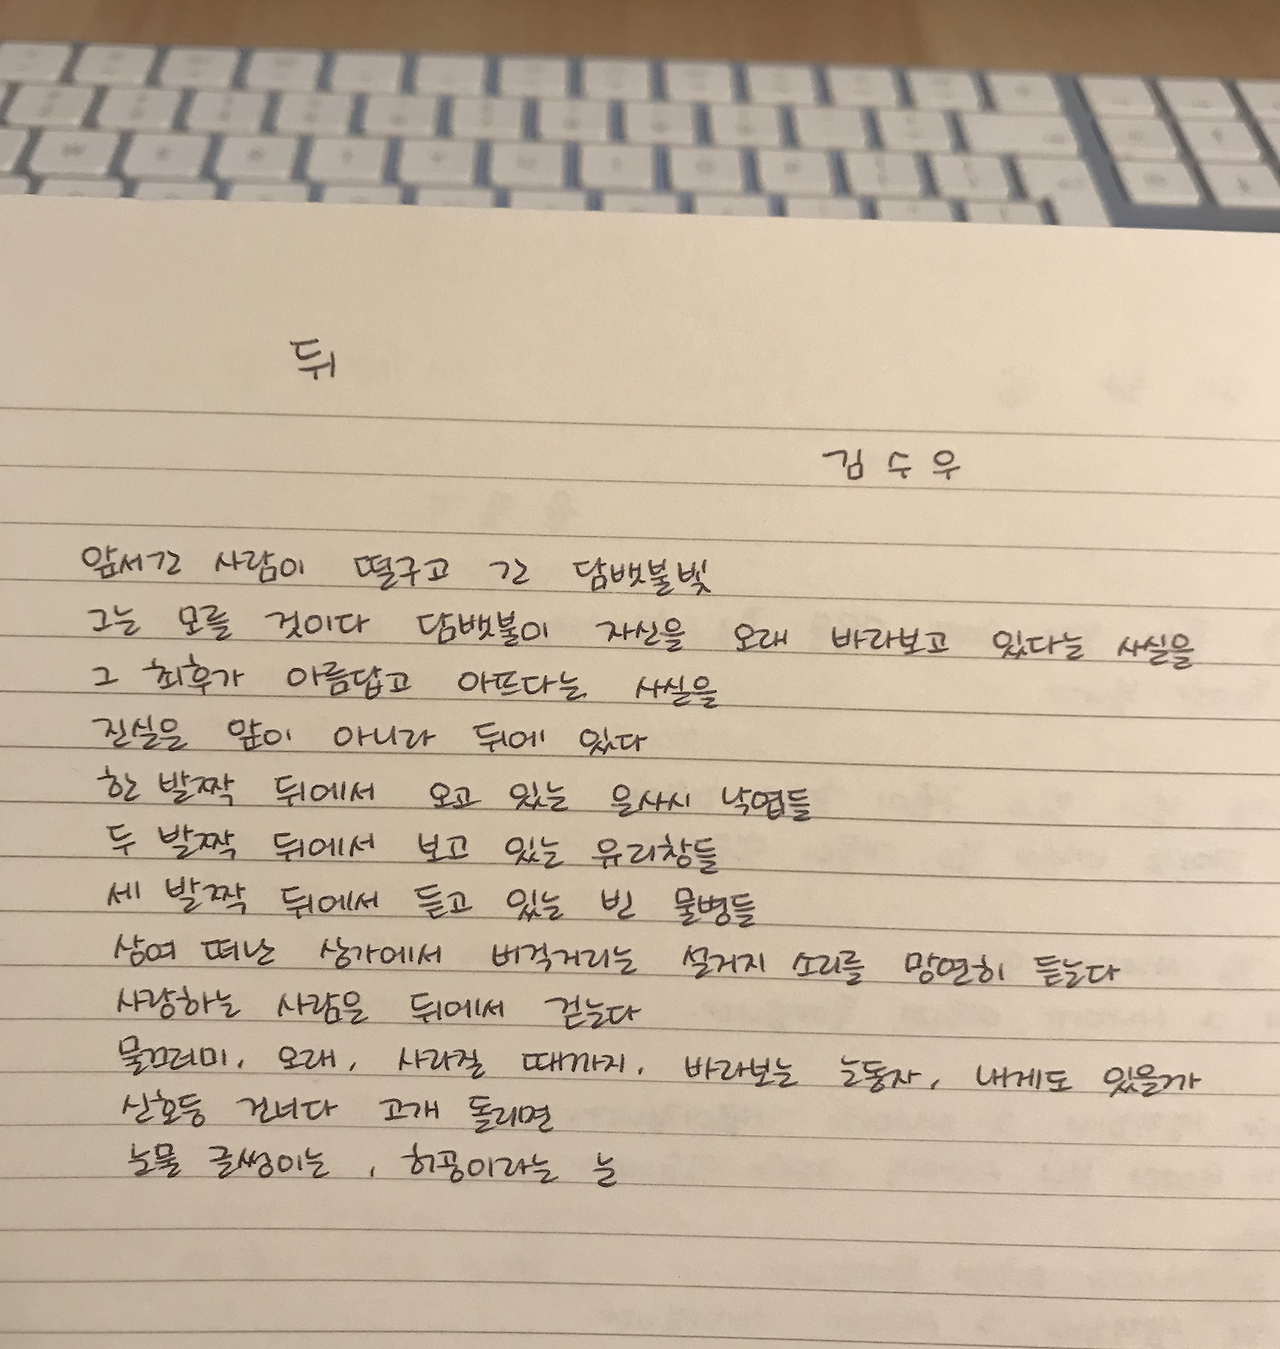 뒤
김수우
앞서간 사람이 떨구고 간 담뱃불빛
그는 모를 것이다 담뱃불이 자신을 오래 바라보고 있다는 사실을
그 최후가 아름답고 아프다는 사실을
진실은 앞이 아니라 뒤에 있다
한 발짝 뒤에서 오고 있는 은사시 낙엽들
두 발짝 뒤에서 보고 있는 유리창들
세 발짝 뒤에서 듣고 있는 빈 물병들
상여 떠난 상가에서 버걱거리는 설거지 소리를 망연히 듣는다
사랑하는 사람은 뒤에서 걷는다
물끄러미, 오래, 사라질 때까지, 바라보는 눈동자, 내게도 있을까
신호등 건너다 고개 돌리면
눈물 글썽이는, 허공이라는 눈